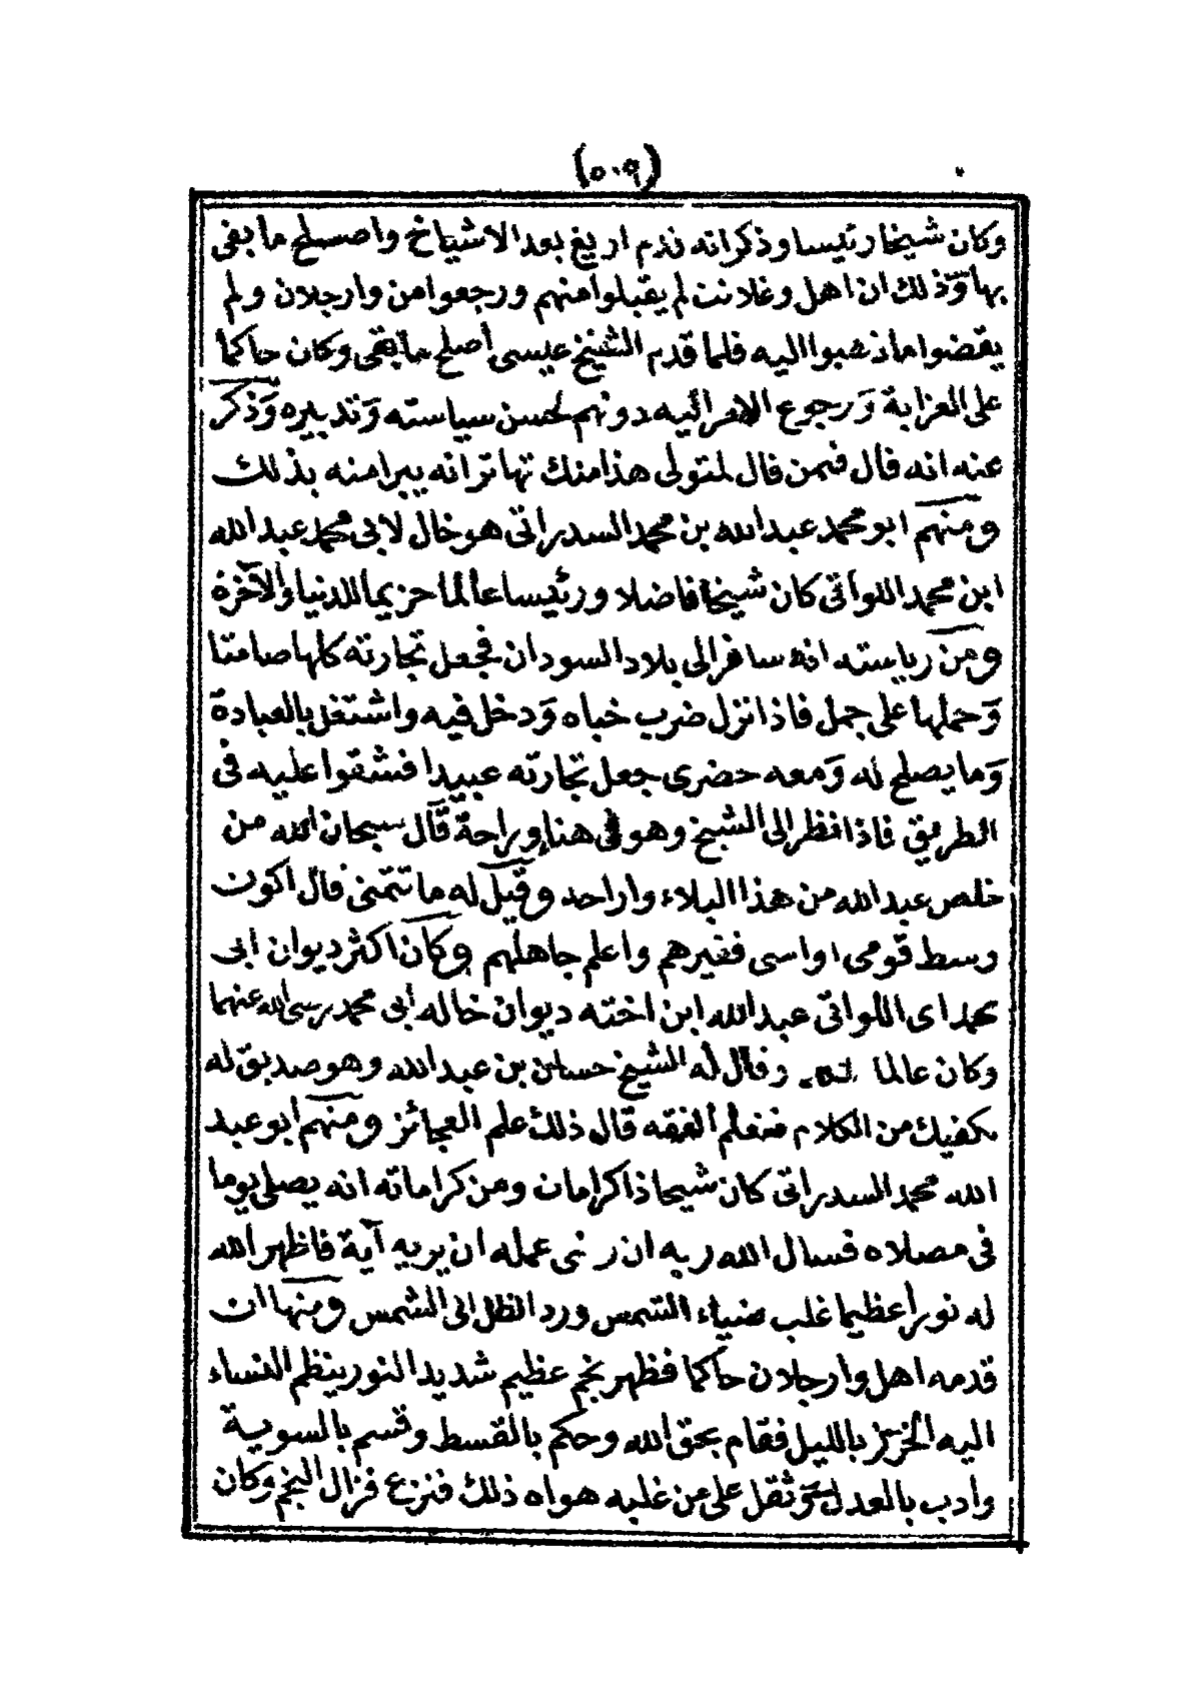 (٥٠٩)
وكان شيخا رئيسا وذكر انه ندم اريغ بعد الاشياخ واصلح ما بقى
بها وذلك ان اهل وغلانت لم يقبلوا منهم ورجعوا من وارجلان ولم
يقضوا ما ذهبوا اليه فلما قدم الشيخ عيسى أصلح ما بقى وكان حاكما
على العزابة وَرجوع الامر اليه دونهم لحسن سياسته وَتدبيره وَذكر
عنه انه قال فيمن قال لمتولى هذا منك تهاتر انه يبرا منه بذلك
ومنهم ابو محمد عبد الله بن محمد السدراتى هو خال لابى محمد عبد الله
ابن محمد اللواتى كان شيخا فاضلا ورئيسا عالما حزيما للدنيا والآخرة
ومن رياسته انه سافر الى بلاد السودان فجعل تجارته كلها صامتا
وَحملها على جمل فاذا نزل ضرب خباه وَدخل فيه واشتغل بالعبادة
وَما يصلح له وَمعه حضرى جعل تجارته عبيدا فشقوا عليه فى
الطريق فاذا نظر الى الشيخ وهو فى هناء وراحة قال سبحان الله من
خلص عبد الله من هذا البلاء واراحه وقيل له ما تتمنى قال اكون
وسط قومى اواسى فقيرهم واعلم جاهلهم وكان اكثر ديوان ابى
محمد اى اللواتى عبد الله ابن اخته ديوان خاله ابى محمد رضى الله عنهما
وكان عالما وقال له الشيخ حسان بن عبد الله وهو صديق له
يكفيك من الكلام فتعلم الفقه قال ذلك علم العجائز ومنهم ابو عبد
الله محمد السدراتى كان شيخا ذا كرامات ومن كراماته انه يصلى يوما
فى مصلاه فسال الله ربه ان رضى عمله ان يريه آية فاظهر الله
له نورا عظيما غلب ضياء الشمس ورد الظل الى الشمس ومنها ان
قدمه اهل وارجلان حاكما فظهر نجم عظيم شديد النور ينظم النساء
اليه الخريز بالليل فقام بحق الله وحكم بالقسط وقسم بالسوية
وادب بالعدل وثقل على من غلبه هواه ذلك فنزع فزال النجم وكان